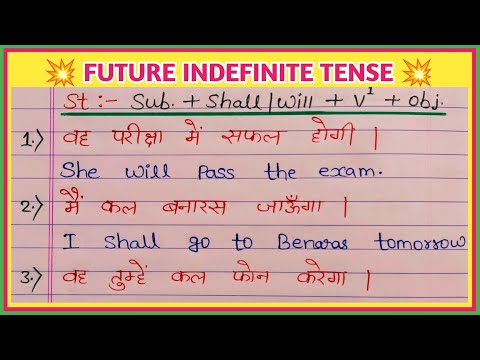 FUTURE INDEFINITE TENSE
St :- Sub. + Shall/Will + V¹ + Obj.
1.> वह परीक्षा में सफल होगी |
She will pass the exam.
2.> मैं कल बनारस जाऊँगा |
I shall go to Benaras tomorrow
3.> वह तुम्हें कल फोन करेगा |